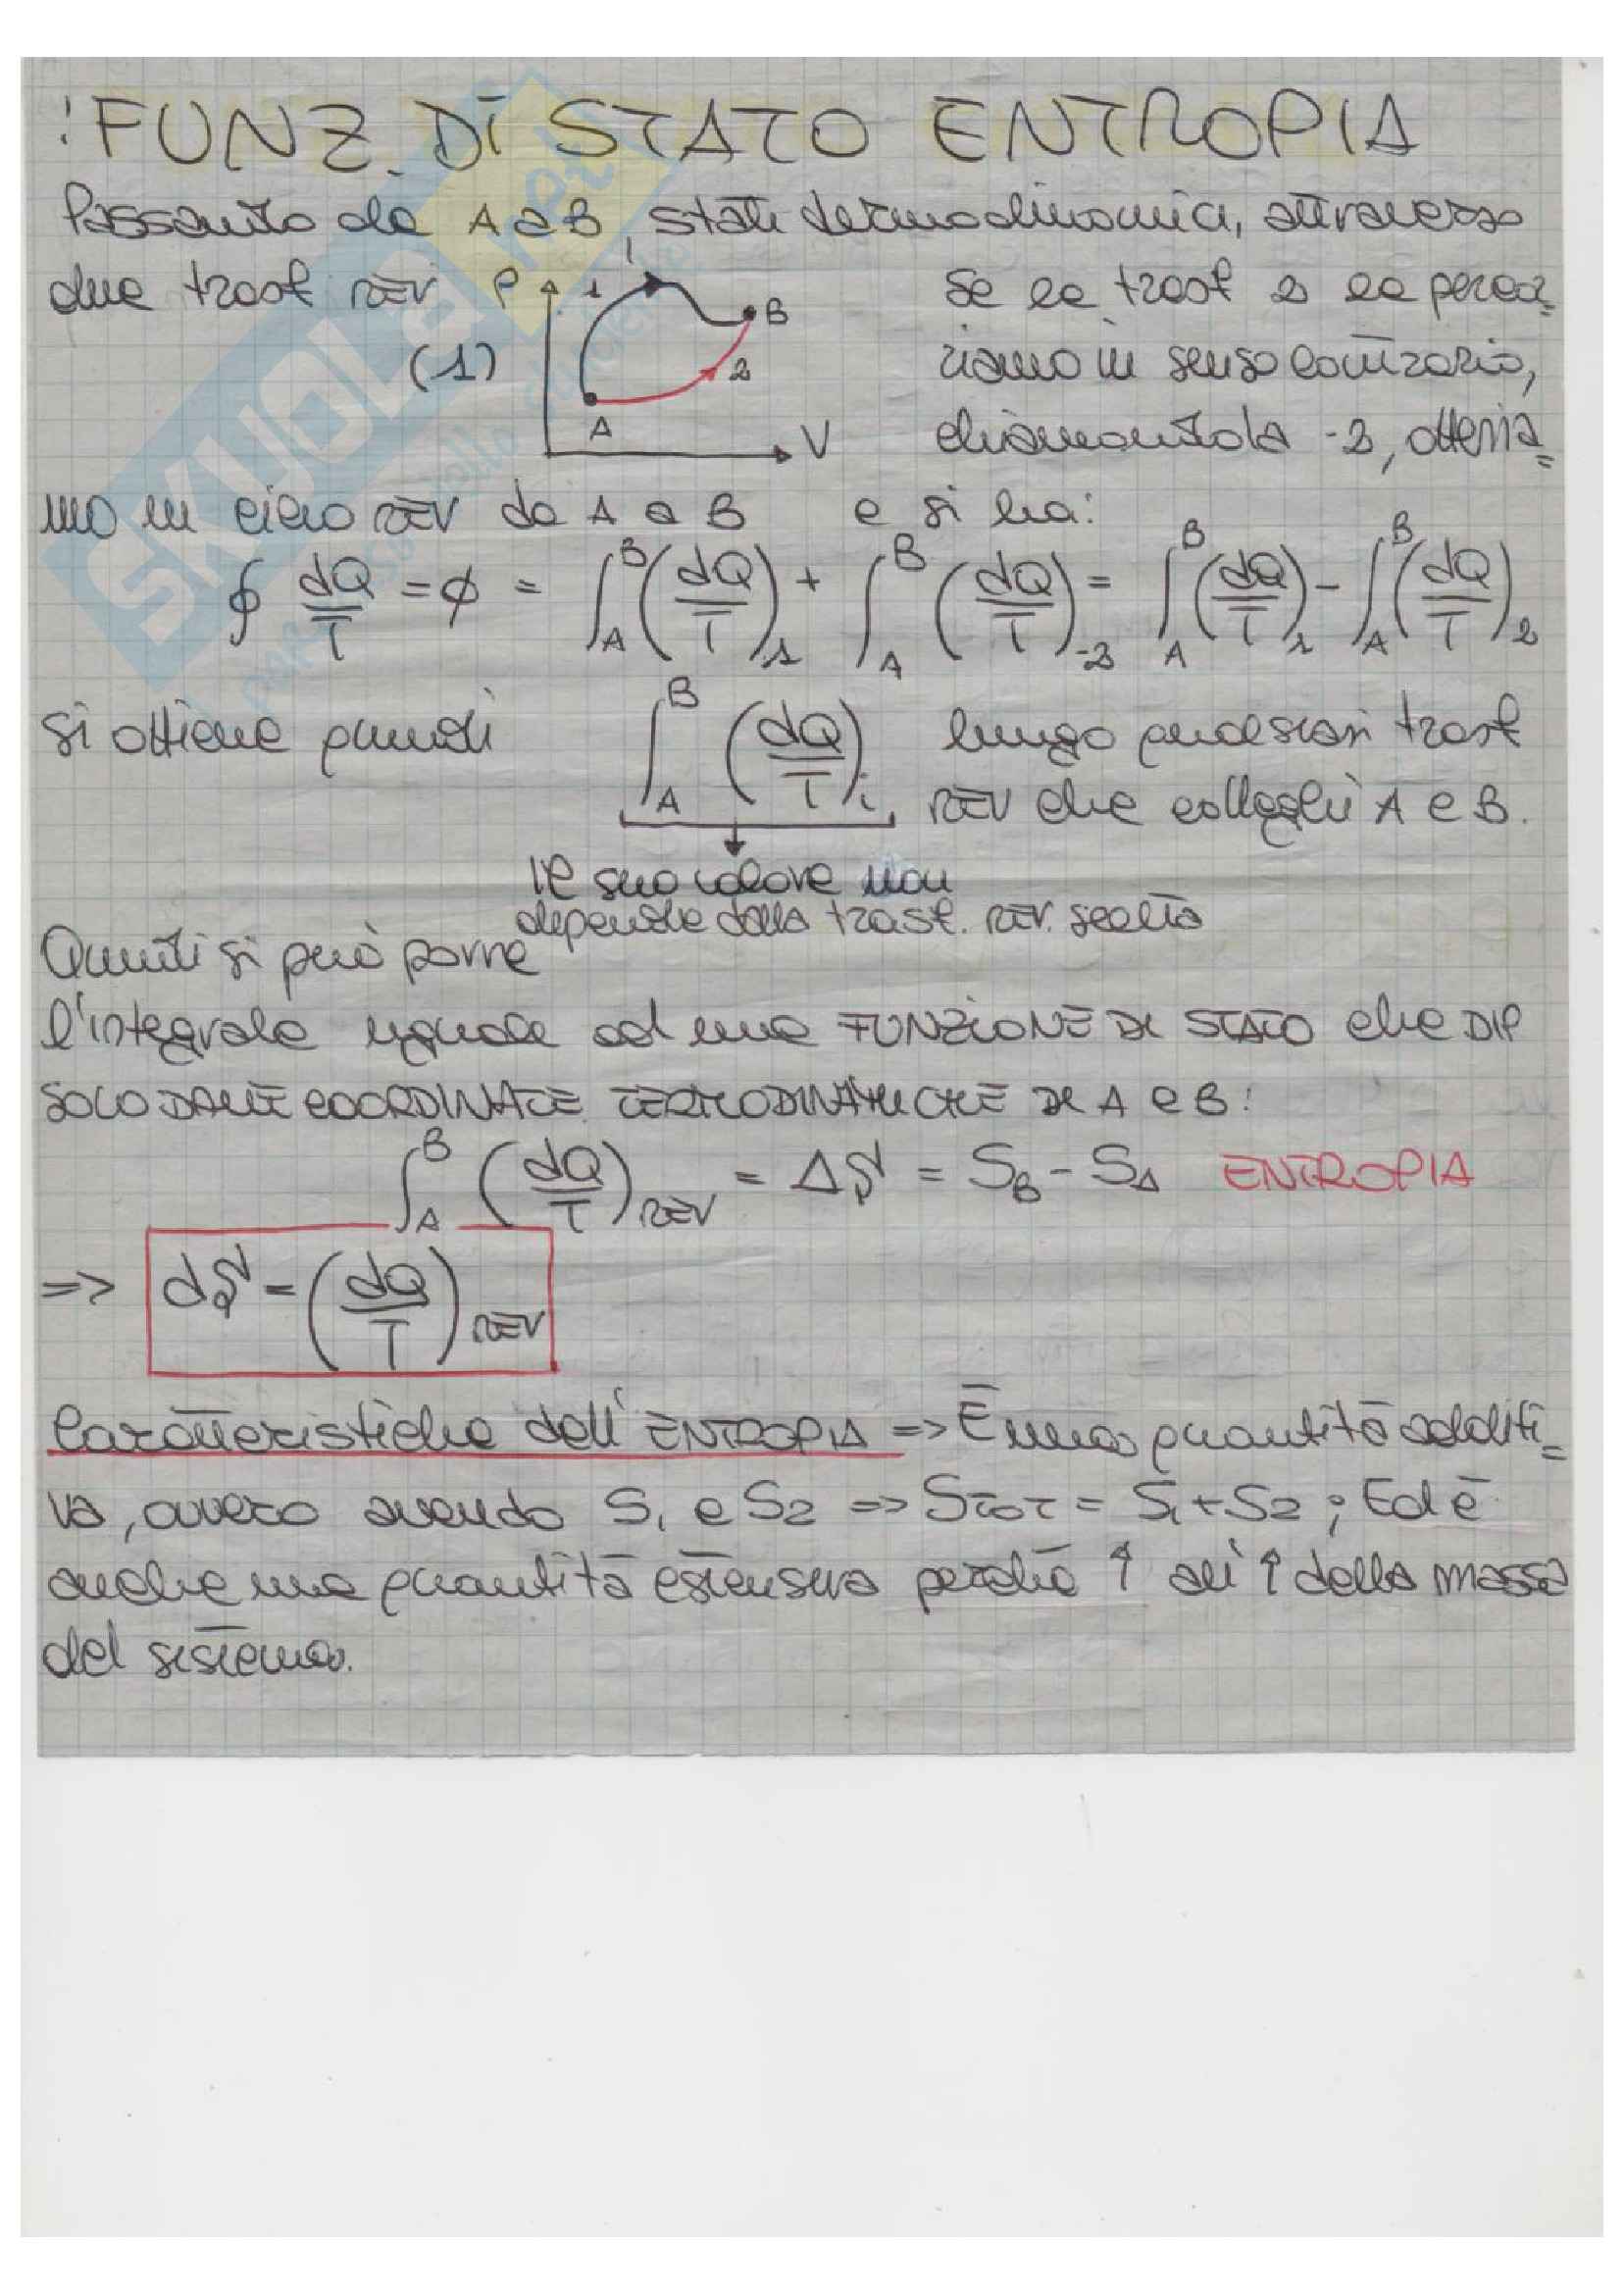 ! FUNZ. DI STATO ENTROPIA
Passando da A a B, stati termodinamici, attraverso
due trasf REV
P 1 B
(1) 2
A V
Se la trasf 2 la percor=
riamo in senso contrario,
chiamandola -2, ottenia=
mo un ciclo REV da A a B e si ha:
∮ dQ/T = ∅ = ∫_A^B (dQ/T)_1 + ∫_A^B (dQ/T)_-2 = ∫_A^B (dQ/T)_1 - ∫_A^B (dQ/T)_2
Si ottiene quindi ∫_A^B (dQ/T)_i lungo qualsiasi trasf
REV che colleghi A e B.
Il suo valore non
dipende dalla trasf. REV. scelta
Quindi si può porre
l'integrale uguale ad una FUNZIONE DI STATO che DIP
SOLO DALLE COORDINATE TERMODINAMICHE DI A e B:
∫_A^B (dQ/T)_REV = ΔS = S_B - S_A ENTROPIA
=> dS = (dQ/T)_REV
Caratteristiche dell'ENTROPIA => È una quantità additi=
va, ovvero avendo S1 e S2 => STOT = S1 + S2 ; Ed è
anche una quantità estensiva perché ↑ all'↑ della massa
del sistema.
SKUOLA.net